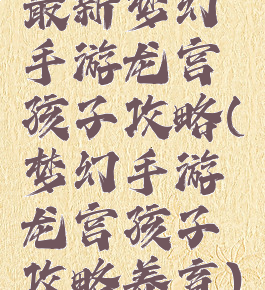 最新梦幻
手游龙宫
孩子攻略(
梦幻手游
龙宫孩子
攻略养育)